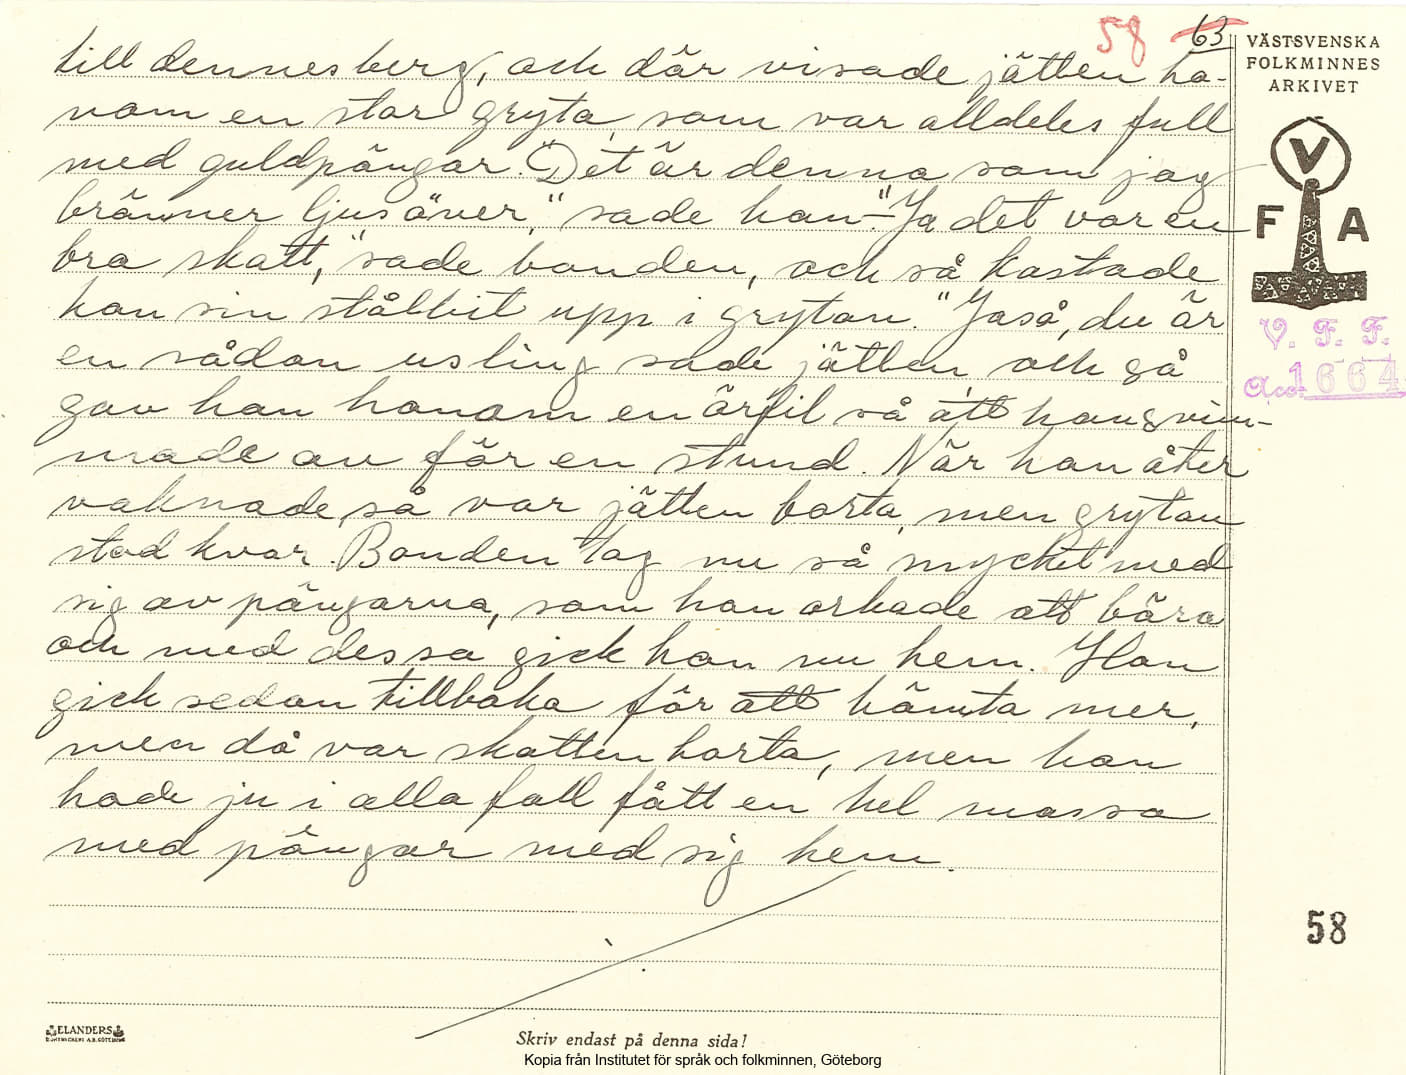 58 63
till dennes berg, och där visade jätten ho-
nom en stor gryta, som var alldeles full
med guldpängar. "Det är denna som jag
bränner ljus över," sade han. - "Ja det var en
bra skatt," sade bonden, och så kastade
han sin stålbit upp i grytan. "Jaså, du är
en sådan usling sade jätten, och så
gav han honom en örfil så att han svim-
made av för en stund. När han åter
vaknade, så var jätten borta, men grytan
stod kvar. Bonden tog nu så mycket med
sig av pängarna, som han orkade att bära
och med dessa gick han nu hem. Han
gick sedan tillbaka för att hämta mer,
men då var skatten borta, men han
hade ju i alla fall fått en hel massa
med pängar med sig hem.
VÄSTSVENSKA
FOLKMINNES
ARKIVET
V
F A
V. F. F.
Acc. 1664
58
ELANDERS
BOKTRYCKERI A.B. GÖTEBORG
Skriv endast på denna sida!
Kopia från Institutet för språk och folkminnen, Göteborg